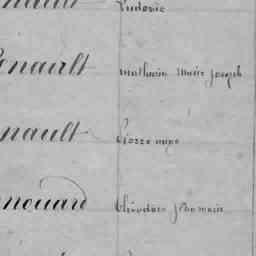 Ludovic
enault mathurin marie joseph
nault Pierre
nouard théodore jean marie